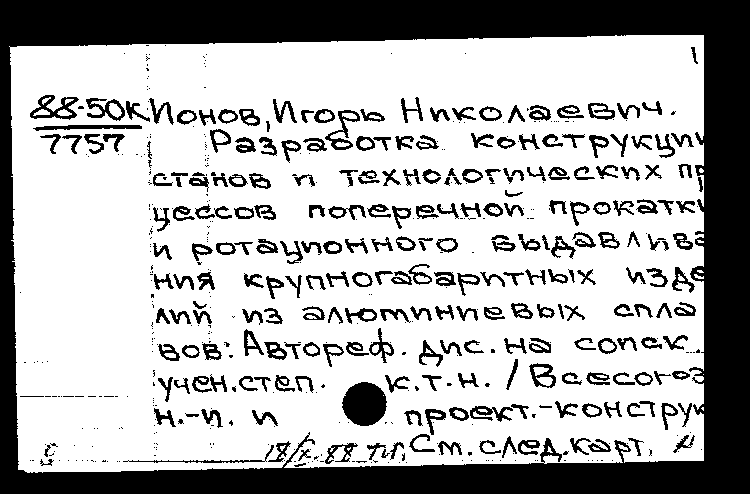 1
88-50К Ионов, Игорь Николаевич.
7757 Разработка конструкци
станов и технологических пр
цессов поперечной прокатк
и ротационного выдавлива
ния крупногабаритных изде
лий из алюминиевых спла
вов: Автореф. дис. на соиск
учен. степ. к.т.н. / Всесоюз
н.-и. и проект.-конструк
18/X.88 См. след. карт.